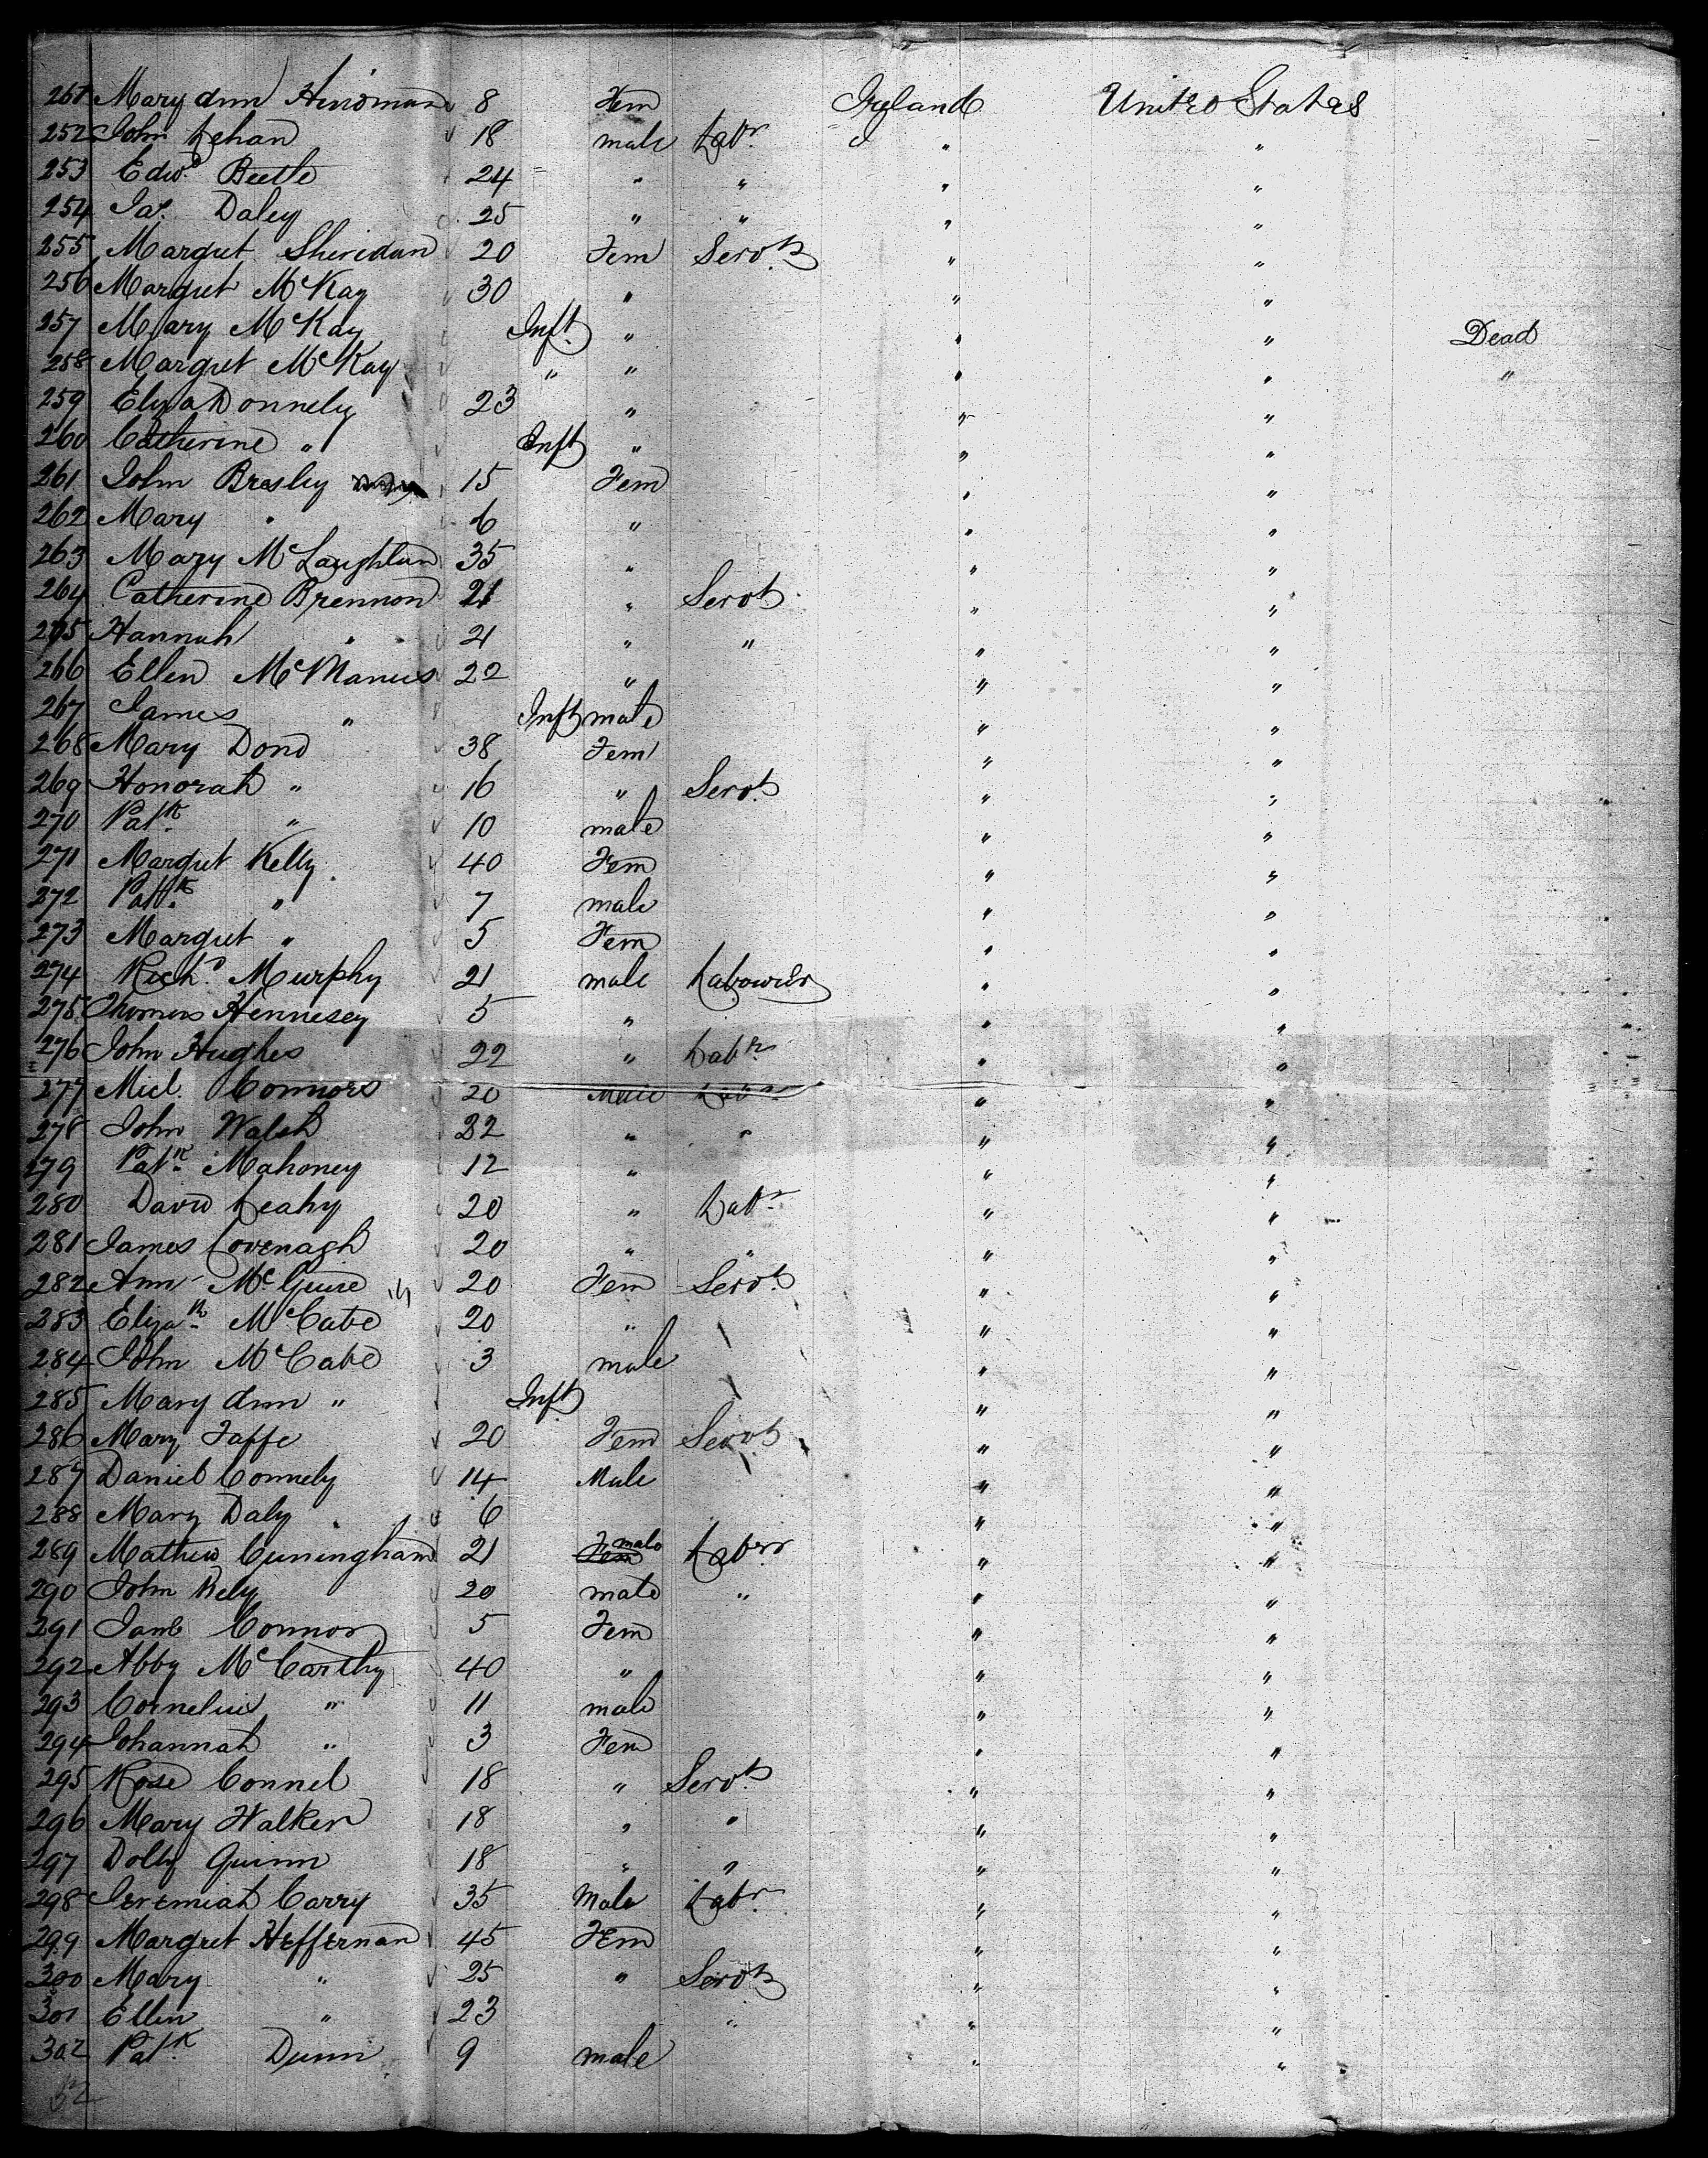 251 Mary Ann Hindman 8 Fem Ireland United States
252 John Lehan 18 male Labr. " "
253 Edwd. Beetle 24 " " " "
254 Jas. Daley 25 " " " "
255 Margut Sheridan 20 Fem Servt " "
256 Margut McKay 30 " " "
257 Mary McKay Inft " " " Dead
258 Margut McKay " " " " "
259 Eliza Donnely 23 " " "
260 Catherine " Inft " " "
261 John Bresley 15 Fem " "
262 Mary " 6 " " "
263 Mary McLaughlin 35 " " "
264 Catherine Brennon 21 " Servt " "
265 Hannah " 21 " " " "
266 Ellen McManus 22 " " "
267 James " Inft male " "
268 Mary Dond 38 Fem " "
269 Honorah " 16 " Servt. " "
270 Patk. " 10 male " "
271 Margut Kelly 40 Fem " "
272 Pattk. " 7 male " "
273 Margut " 5 Fem " "
274 Richd. Murphy 21 male Labourer " "
275 Thomas Hennesey 5 " " "
276 John Hughes 22 " Labr " "
277 Micl. Connors 20 Male Labr " "
278 John Walsh 22 " " " "
279 Patk. Mahoney 12 " " "
280 David Leahy 20 " Labr " "
281 James Covenagh 20 " " " "
282 Ann McGuire 20 Fem Servt " "
283 Elizath McCabe 20 " " "
284 John McCabe 3 male " "
285 Mary Ann " Inft " "
286 Mary Taffe 20 Fem Servt " "
287 Daniel Connely 14 Male " "
288 Mary Daly 6 " "
289 Mathew Cuningham 21 male Labr " "
290 John Kely 20 male " " "
291 Jane Connor 5 Fem " "
292 Abby McCarthy 40 " " "
293 Cornelius " 11 male " "
294 Johannah " 3 Fem " "
295 Rose Connel 18 " Servt. " "
296 Mary Walker 18 " " " "
297 Dolly Quinn 18 " " " "
298 Jeremiah Carry 35 Male Labr. " "
299 Margret Heffernan 45 Fem " "
300 Mary " 25 " Servt " "
301 Ellen " 23 " " "
302 Patk. Dunn 9 male " "
52